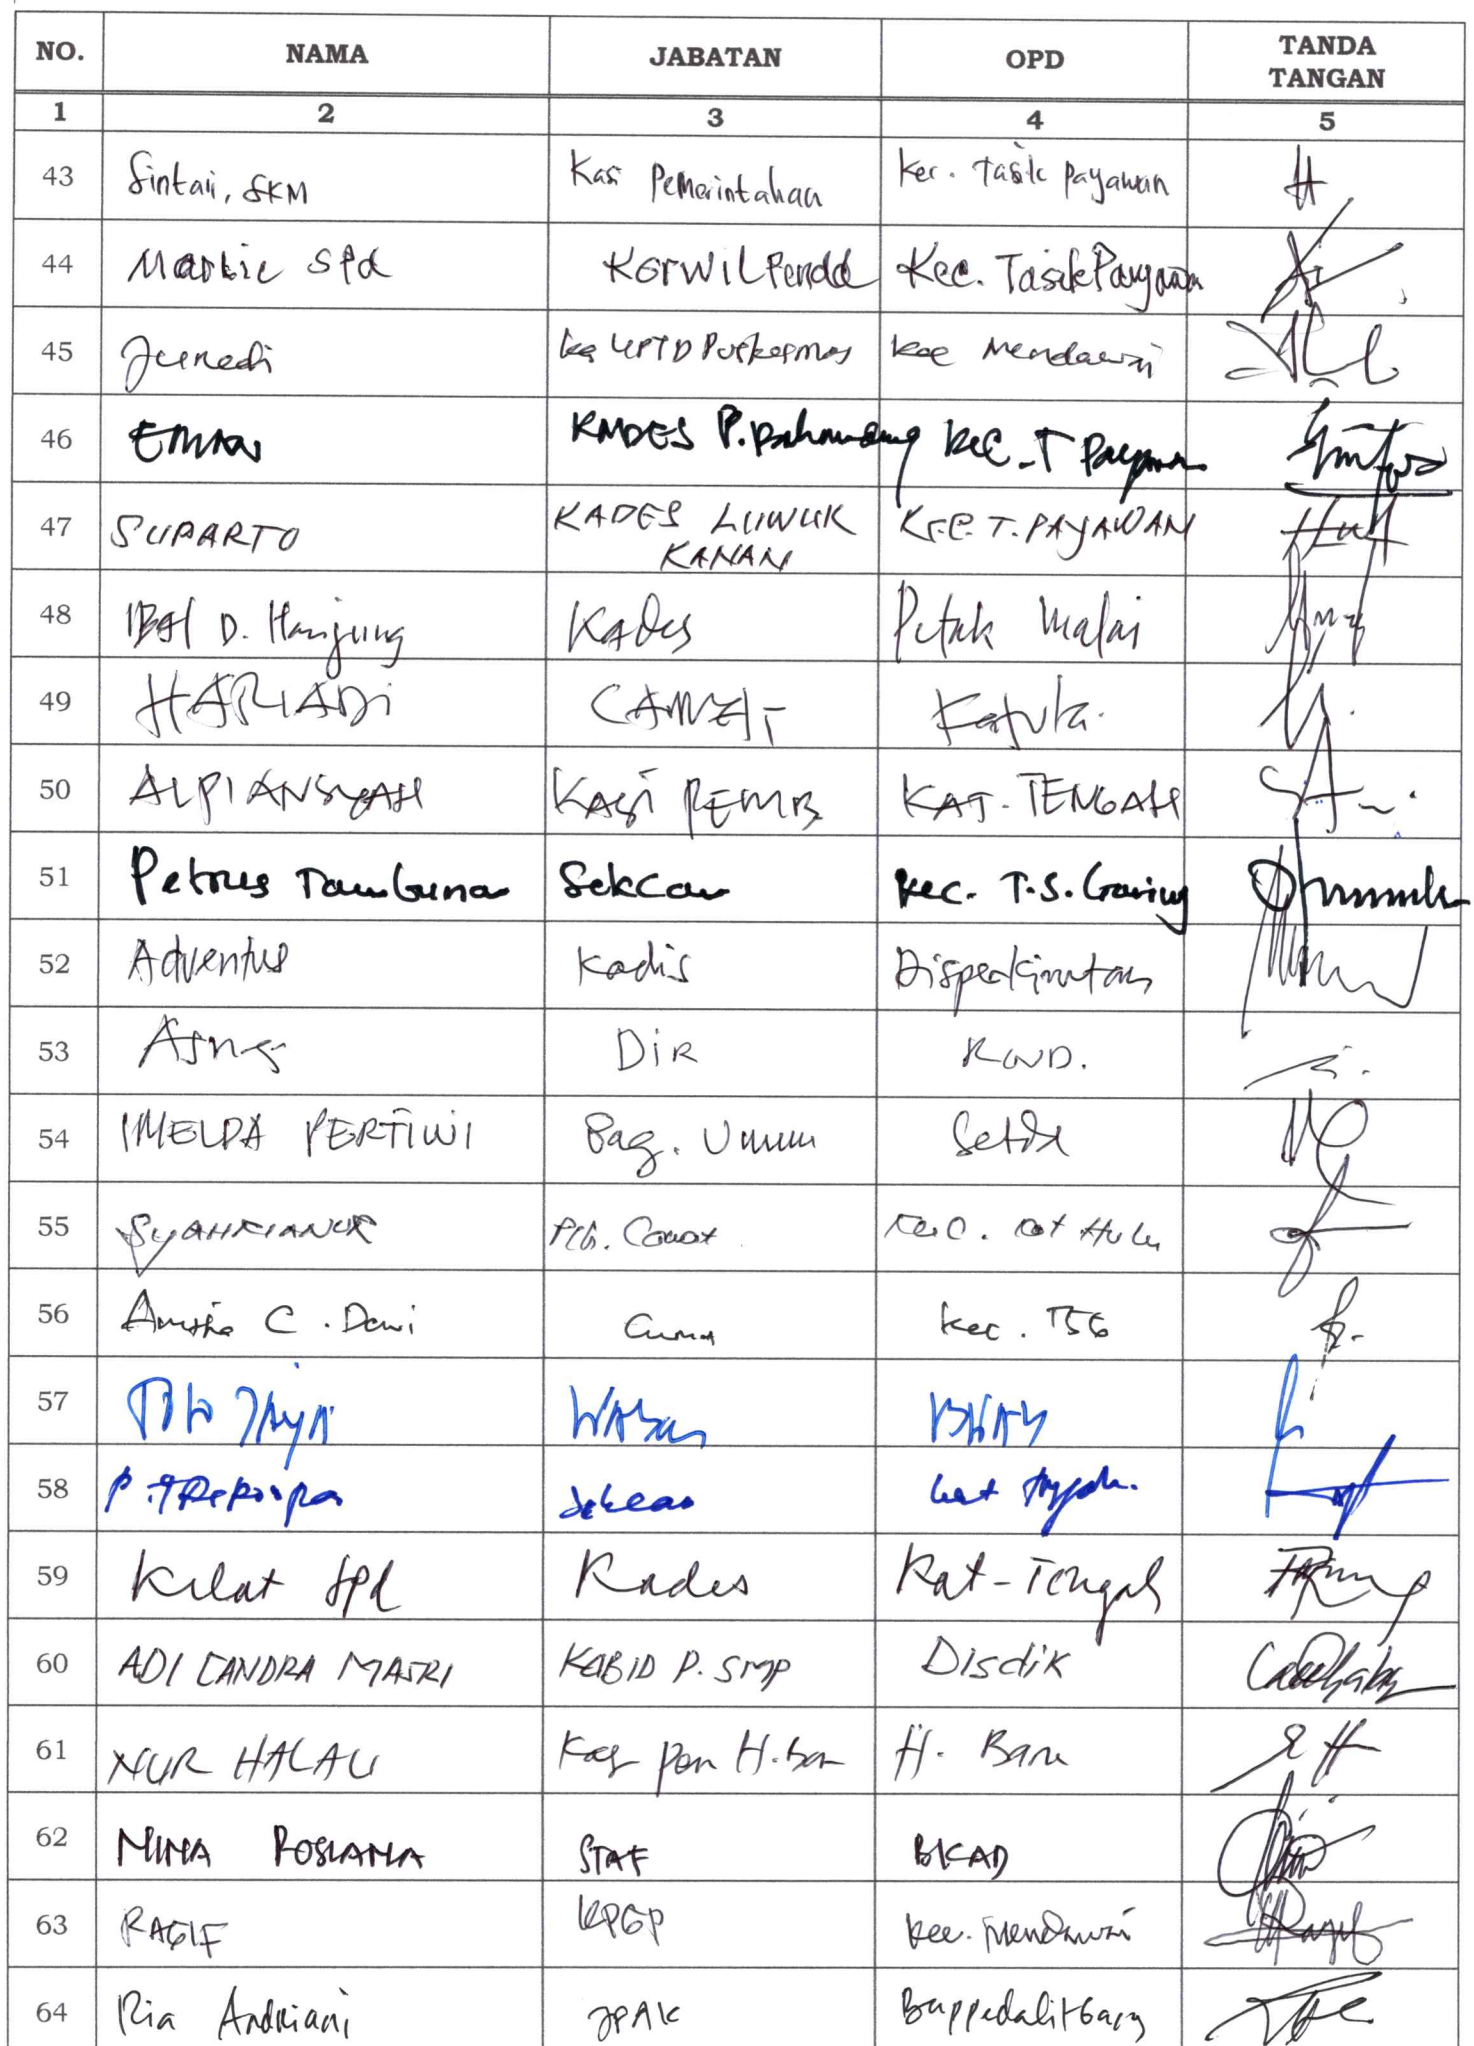 NO. NAMA JABATAN OPD TANDA
TANGAN
1 2 3 4 5
43 Sintaii, SKM Kasi Pemerintahan Kec. Tasik Payawan
44 Markie SPd KORWIL Pendd Kec. Tasik Payawan
45 Junedi Ka UPTD Puskesmas Kec Mendawai
46 EMAN KADES P. Bahandang Kec. T Payawan
47 SUPARTO KADES LUWUK
KANAN KEC. T. PAYAWAN
48 D. Hanjung Kades Petak Malai
49 HARIADI CAMAT Katula.
50 ALPIANSYAH KASI PEMB KAT. TENGAH
51 Petrus Tambunan Sekcam Kec. T.S. Garing
52 Adventus Kadis Disperkimtan
53 Dir RWD.
54 IMELDA PERTIWI Bag. Umum Setda
55 SYAHRIANUR Plh. Camat Kec. Kat Hulu
56 C. Dewi Camat Kec. TSG
57 JAYA BKAD
58 Sekcam Kat Tengah.
59 Kilat SPd Kades Kat-Tengah
60 ADI CANDRA MASRI KABID P. SMP Disdik
61 NUR HALAU H. Baru
62 NINA ROSLIANA STAF BKAD
63 RAGIF KPGP Kec. Mendawai
64 Ria Andriani JPAK Bappedalitbang